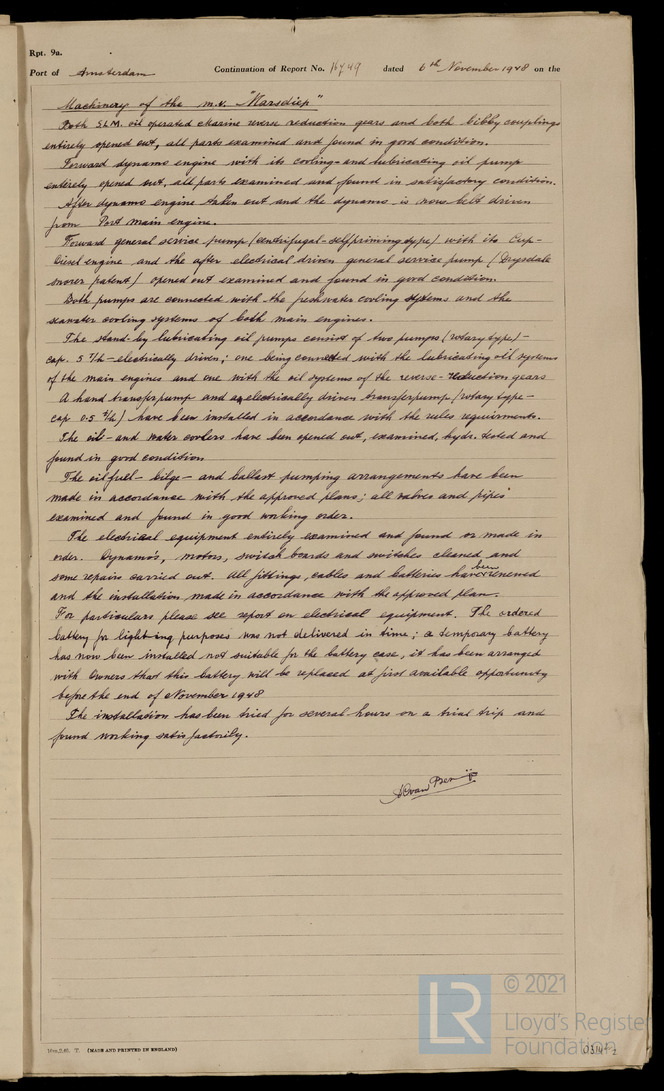 Rpt. 9a.
Port of Amsterdam Continuation of Report No. 16749 dated 6th November 1948 on the
Machinery of the m.v. "Marsdiep"
Both S.L.M. oil operated marine reverse reduction gears and both bibby couplings
entirely opened out, all parts examined and found in good condition.
Forward dynamo engine with its cooling- and lubricating oil pump
entirely opened out, all parts examined and found in satisfactory condition.
After dynamo engine taken out and the dynamo is now belt driven
from Port main engine.
Forward general service pump (centrifugal-selfpriming type) with its
Diesel engine and the after electrical driven general service pump (Drysdale
patent) opened out examined and found in good condition.
Both pumps are connected with the freshwater cooling systems and the
seawater cooling systems of both main engines.
The stand-by lubricating oil pumps consist of two pumps (rotary type) -
cap. 5 T/h - electrically driven; one being connected with the lubricating oil systems
of the main engines and one with the oil systems of the reverse-reduction gears
A hand transferpump and an electrically driven transferpump (rotary type -
cap 0.5 T/h) have been installed in accordance with the rules requirments.
The oil- and water coolers have been opened out, examined, hydr. tested and
found in good condition
The oilfuel- bilge- and ballast pumping arrangements have been
made in accordance with the approved plans; all valves and pipes
examined and found in good working order.
The electrical equipment entirely examined and found or made in
order. Dynamo's, motors, switch boards and switches cleaned and
some repairs carried out. All fittings, cables and batteries have been renewed
and the installation made in accordance with the approved plan.
For particulars please see report on electrical equipment. The ordered
battery for light-ing purposes was not delivered in time; a temporary battery
has now been installed not suitable for the battery case, it has been arranged
with Owners that this battery will be replaced at first available opportunity
before the end of November 1948
The installation has been tried for several hours on a trial trip and
found working satisfactorily.
(MADE AND PRINTED IN ENGLAND)
LR
© 2021
Lloyd's Register
Foundation